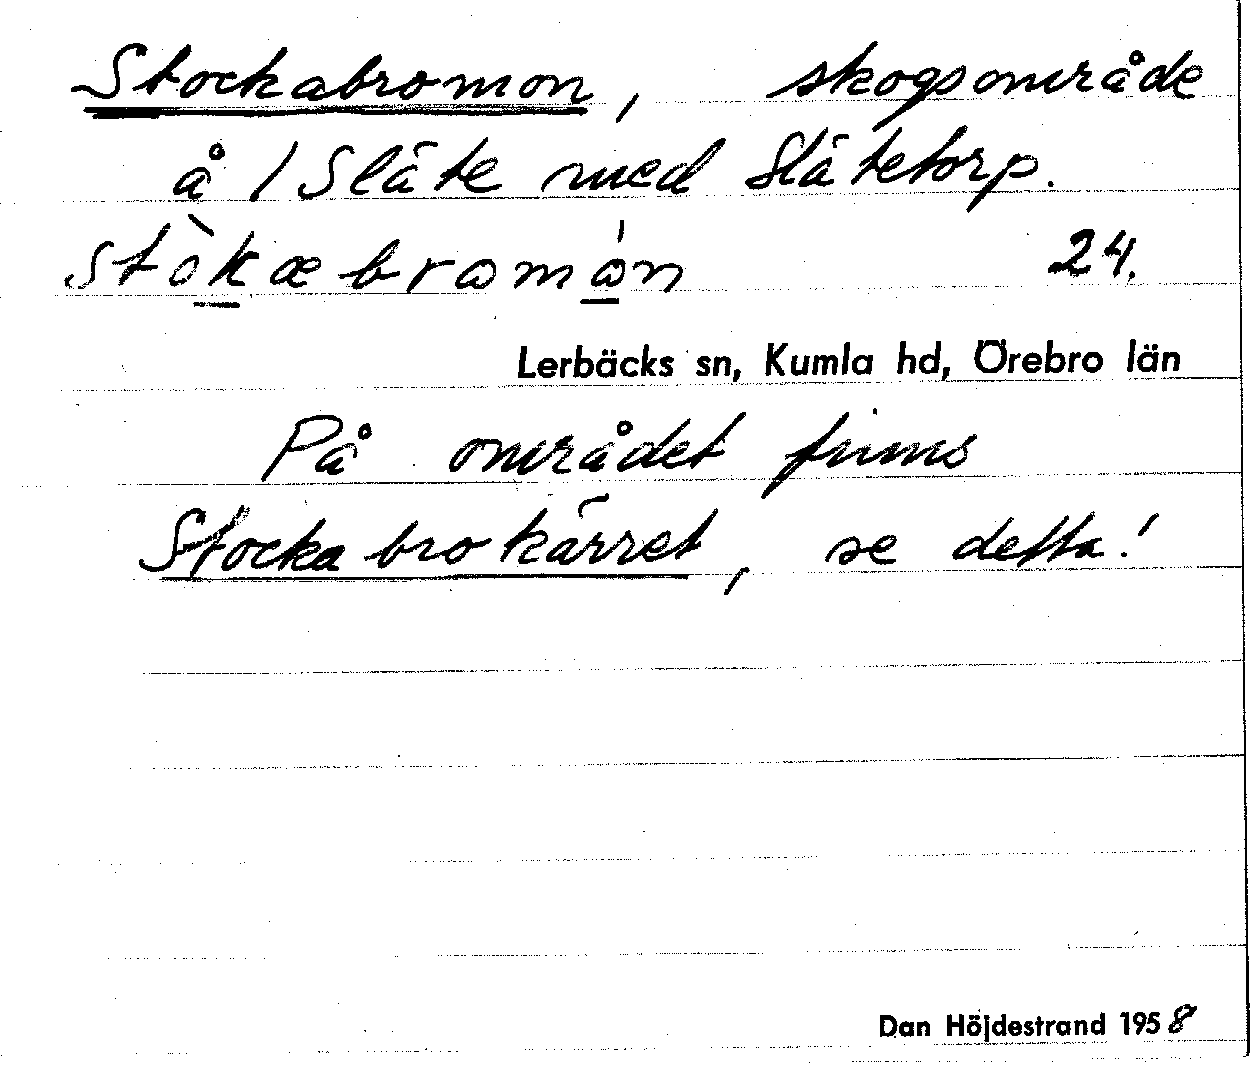 Stockabromon, skogsområde
å 1 Släte med Slätetorp.
stò̀kæbramán 24.
Lerbäcks sn, Kumla hd, Örebro län
På området finns
Stockabrokärret, se detta!
Dan Höjdestrand 1958